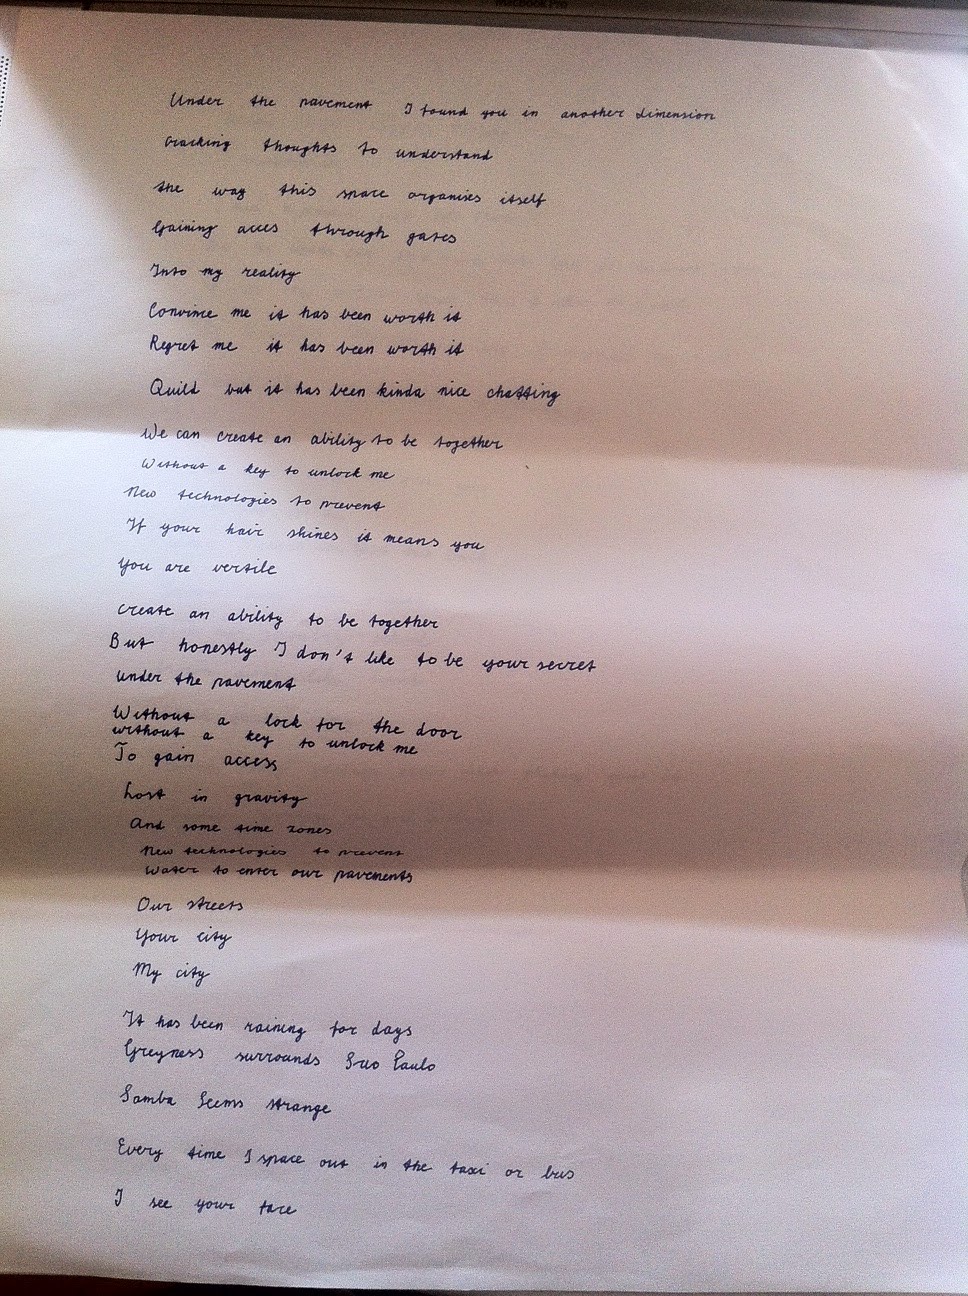 MacBook Pro
Under the pavement I found you in another dimension
Cracking thoughts to understand
the way this space organises itself
Gaining acces through gates
Into my reality
Convince me it has been worth it
Regret me it has been worth it
Quild but it has been kinda nice chatting
We can create an ability to be together
Without a key to unlock me
New technologies to prevent
If your hair shines it means you
You are versile
create an ability to be together
But honestly I don't like to be your secret
under the pavement
Without a lock for the door
without a key to unlock me
To gain access
Lost in gravity
And some time zones
New technologies to prevent
Water to enter our pavements
Our streets
Your city
My city
It has been raining for days
Greyness surrounds Sao Paulo
Samba Seems strange
Every time I space out in the taxi or bus
I see your face